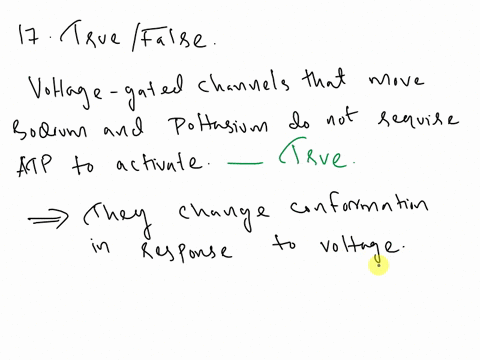 17. True/False.
Voltage-gated channels that move
Sodium and Pottasium do not require
ATP to activate. — True.
⇒ They change conformation
in response to voltage.